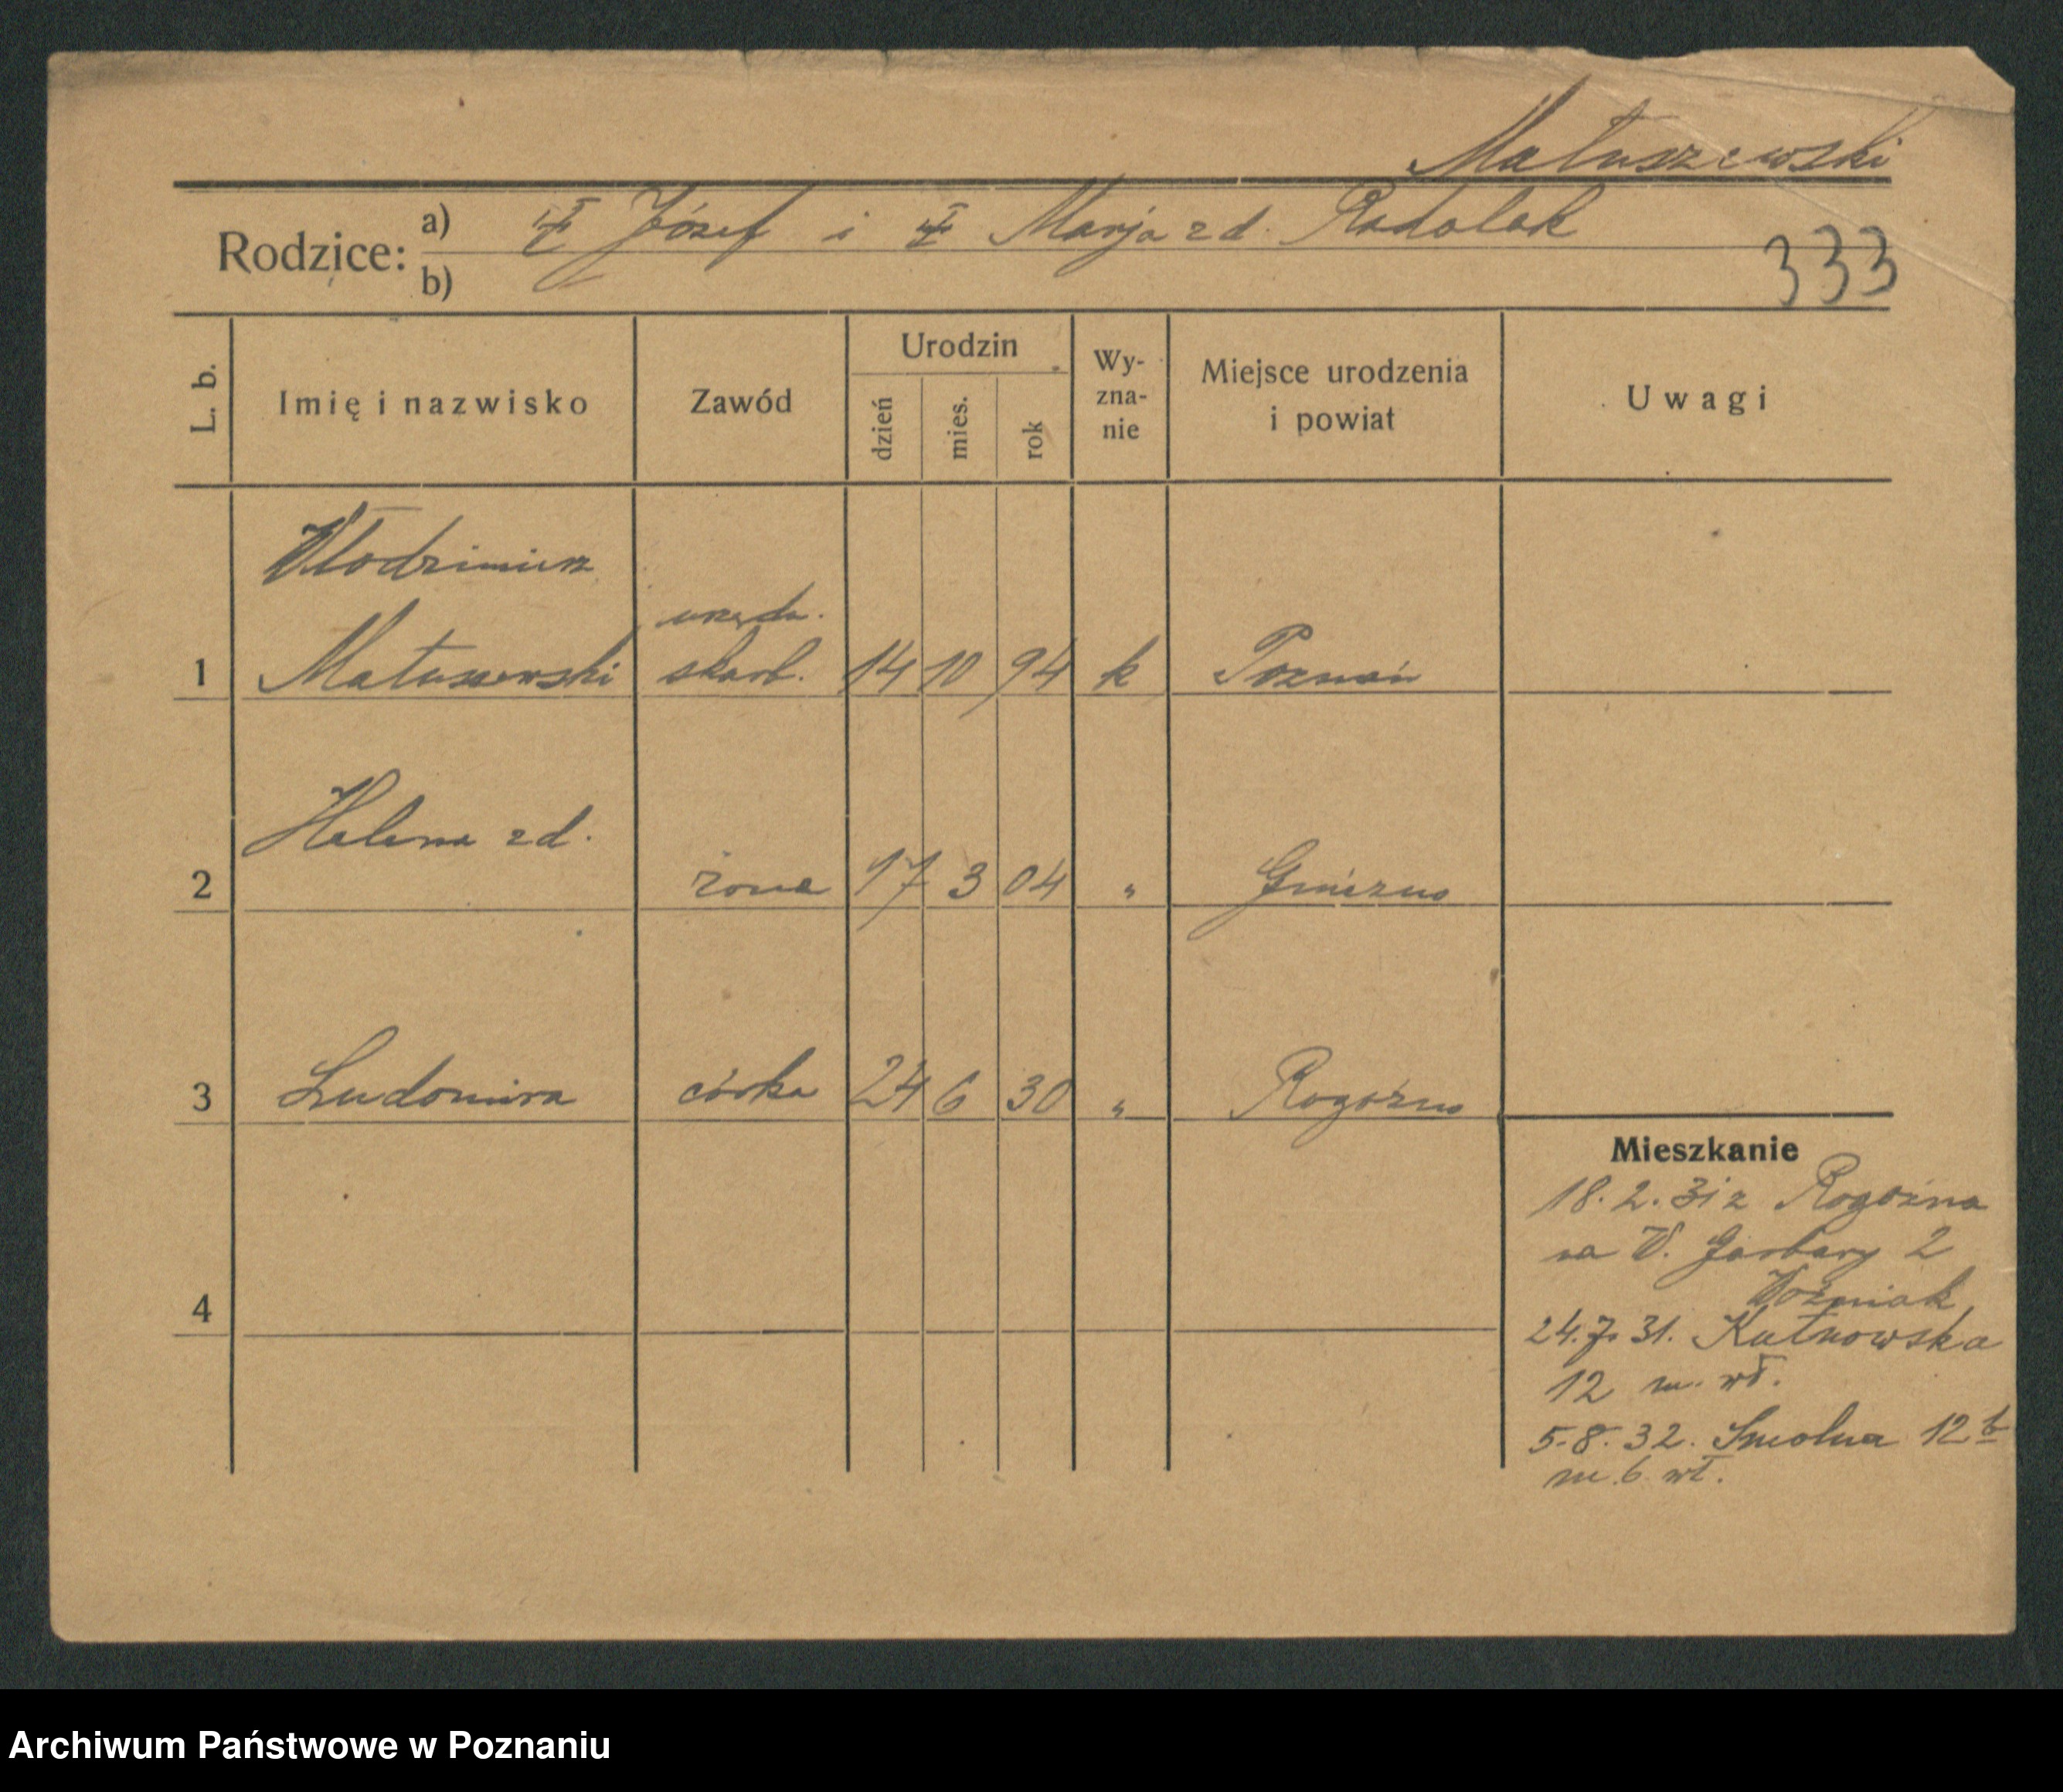 Matuszewski
Rodzice: a) Józef i Marja zd. Radolak
b)
333
L. b.
Imię i nazwisko
Zawód
Urodzin
dzień
mies.
rok
Wy-
zna-
nie
Miejsce urodzenia
i powiat
Uwagi
Włodzimierz
urzędn.
1 Matuszewski skarb. 14 10 94 k Poznań
Helena zd.
2 żona 17 3 04 " Gniezno
3 Ludomira córka 24 6 30 " Rogoźno
4
Mieszkanie
18.2.31 z Rogoźna
na W. Garbary 2
Woźniak
24.7.31. Kutnowska
12 m. wł.
5.8.32. Smolna 12 b
m. 6 wł.
Archiwum Państwowe w Poznaniu